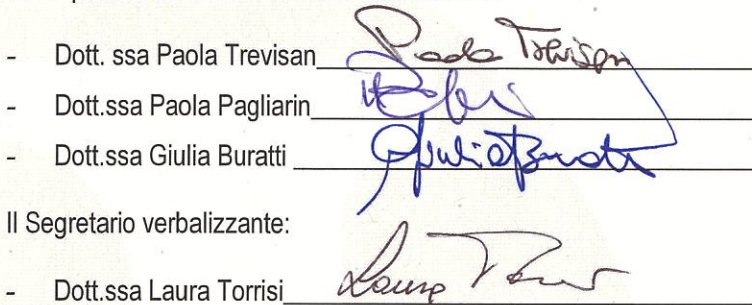 - Dott. ssa Paola Trevisan Paola Trevisan
- Dott.ssa Paola Pagliarin
- Dott.ssa Giulia Buratti Giulia Buratti
Il Segretario verbalizzante:
- Dott.ssa Laura Torrisi Laura